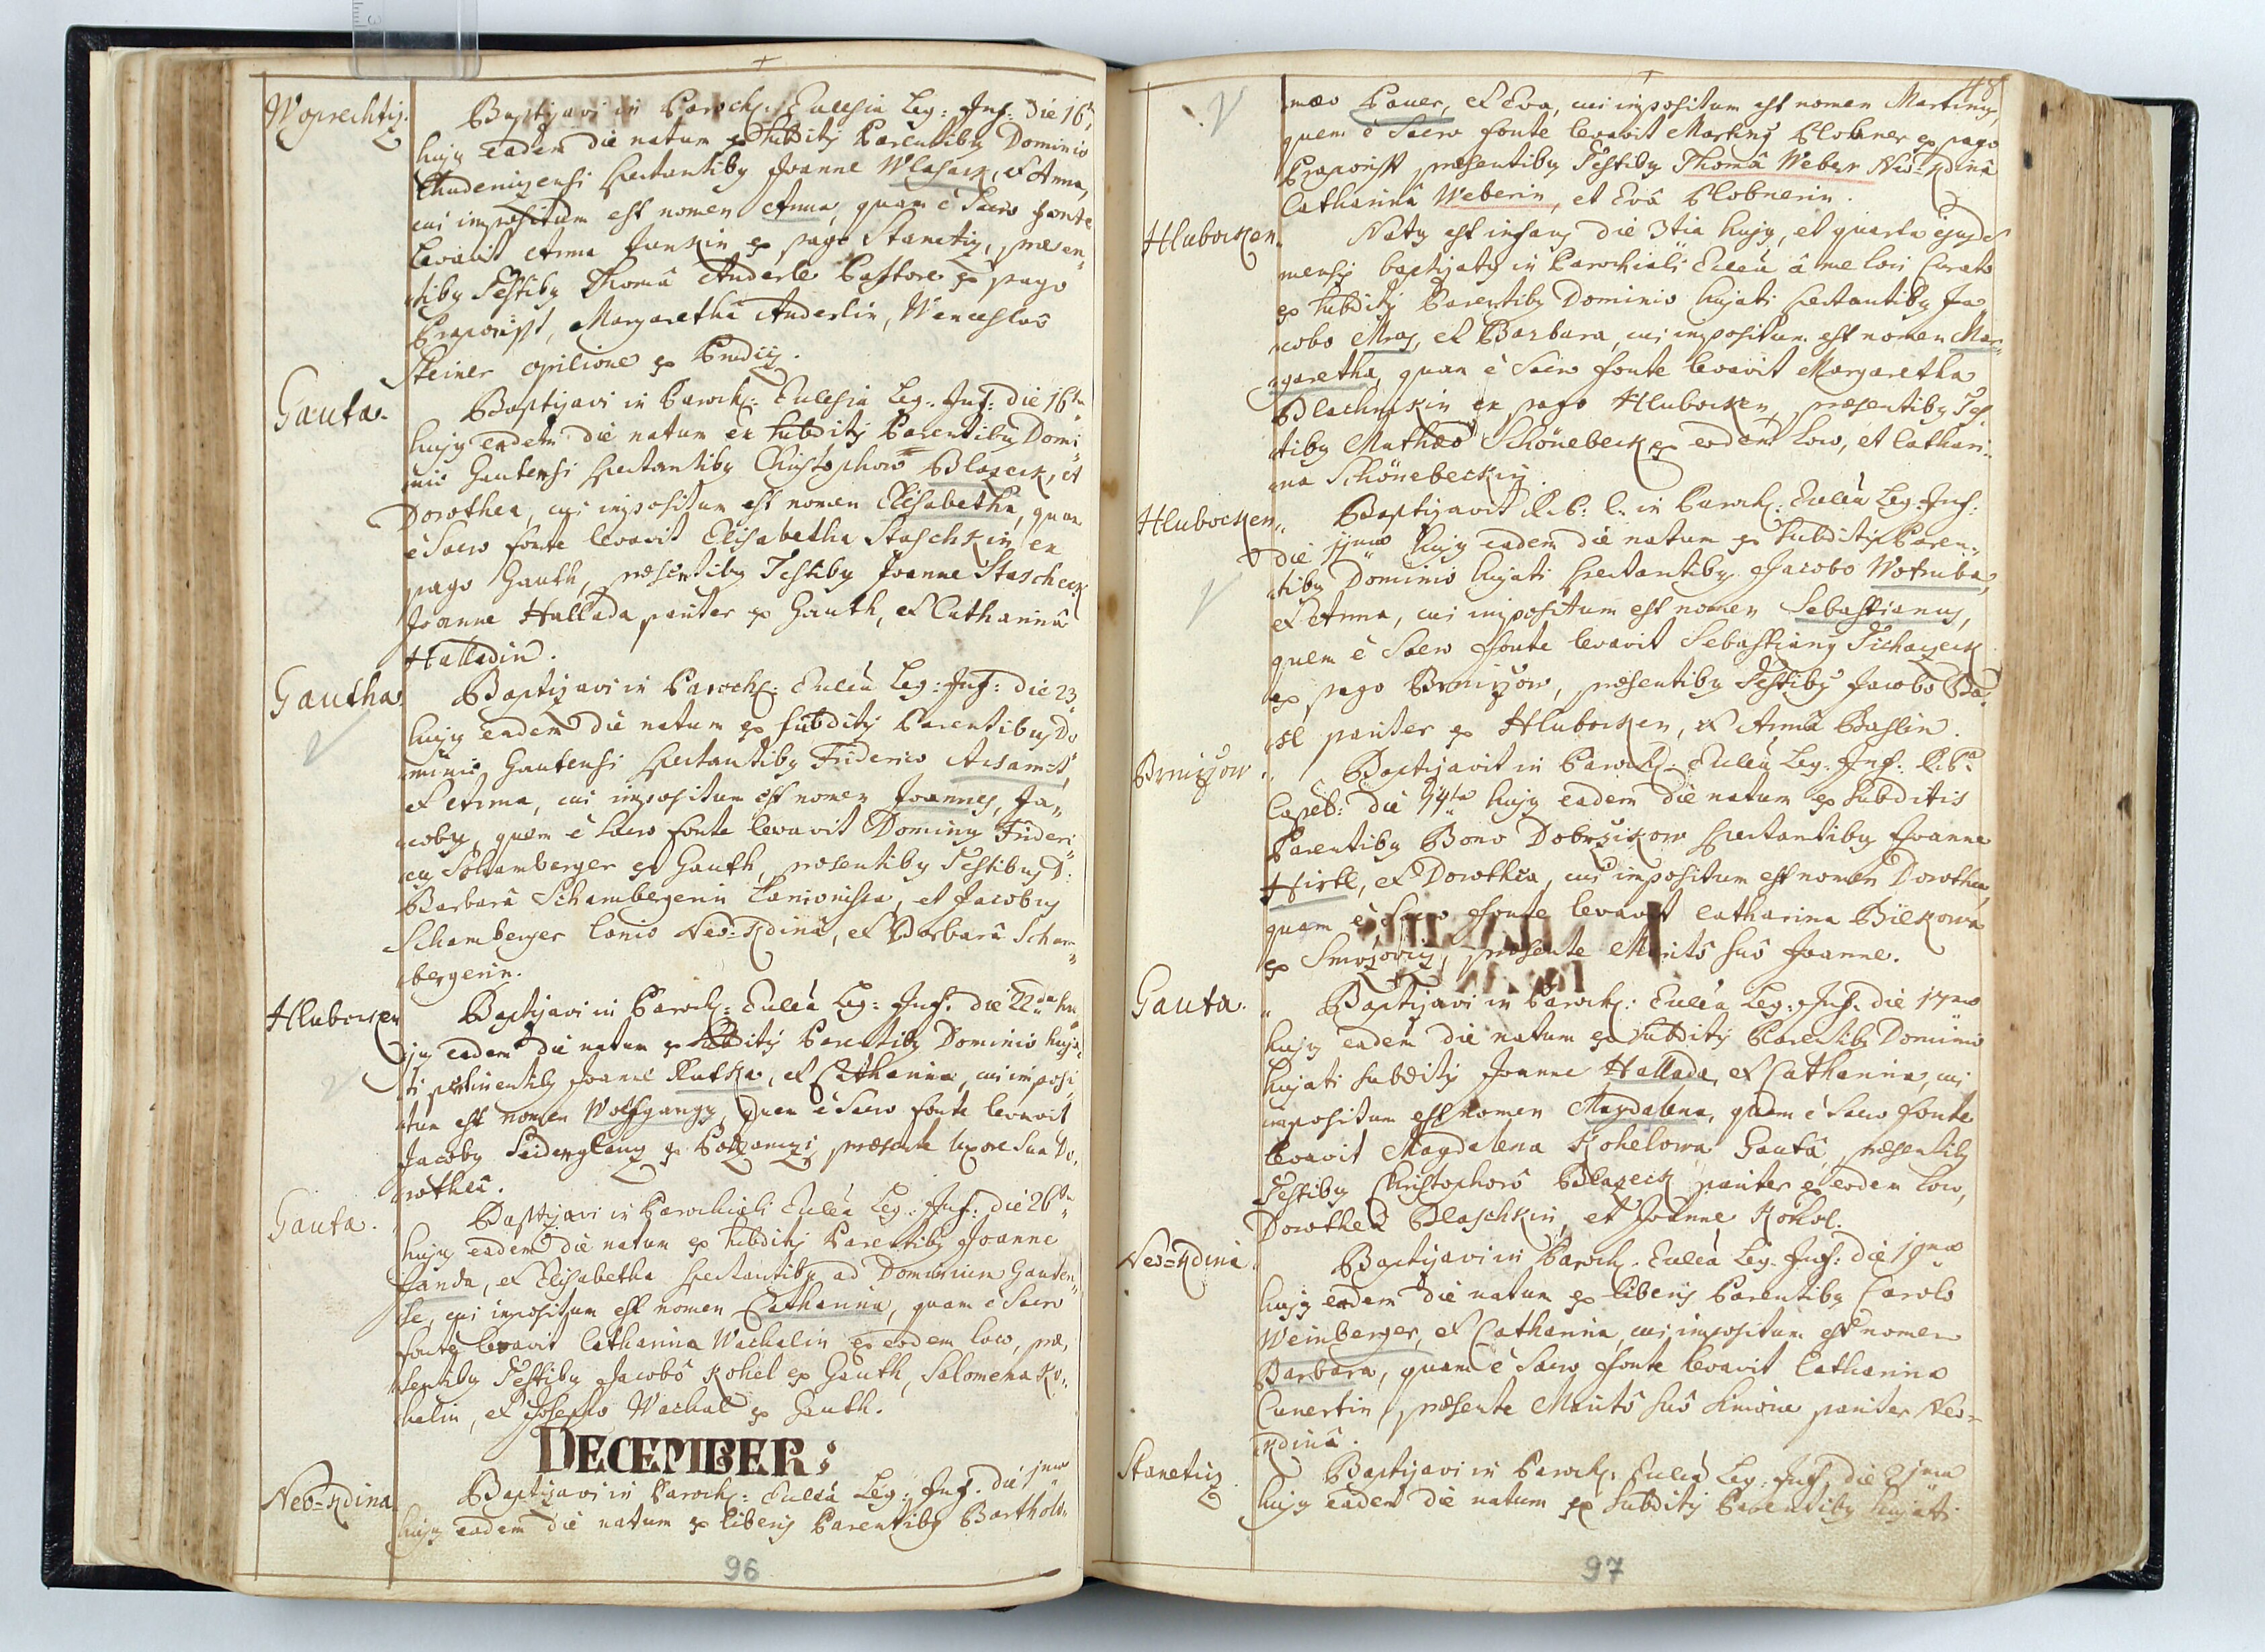 Woprechtiz.
Baptizavi in Paroch: Ecclesia Leg: Inf: die 16ta
hujus eadem die natam ex subditis Parentibus Dominio
Chudenizensi spectantibus Joanne Wlasack, et Anna,
cui impositum est nomen Anna, quam è Sacro fonte
levavit Anna Junkin ex pago Stanetiz, præsen„
tibus Testibus Thomâ Anderle Pastore ex pago
Praporischt, Margarethâ Anderlin, Wenceslao
Steiner opilione ex
Gauta.
Baptizavi in Paroch: Ecclesia Leg: Inf: die 16ta
hujus eadem die natam ex subditis Parentibus Domi„
nio Gautensi spectantibus Christophoro Blazeck, et
Dorothea, cui impositum est nomen Elisabetha, quam
è Sacro fonte levavit Elisabetha Staschkin ex
pago Gauth, præsentibus Testibus Joanne Stascheck
Joanne Hallada pariter ex Gauth, et Catharinâ
Halladin.
Gautha
Baptizavi in Paroch: Eccleâ Leg: Inf: die 23
hujus eadem die natum ex subditis Parentibus Do
minio Gautensi spectantibus Friderico
et Anna, cui impositum est nomen Joannes, Ja„
cobus, quem è Sacro fonte levavit Dominus Frideri„
cus Schamberger ex Gauth, præsentibus Testibus D:
Barbarâ Schambergerin et Jacobus
Schamberger Lanio Neo-Kdina, et Barbarâ Scham„
bergerin.
Hlubocken
Baptizavi in Paroch: Eccleâ Leg: Inf: die 22da hu„
jus eadem die natum ex subditis Parentibus Dominio huja„
ti pertinentibus Joanne Rutka, et Catharina, cui imposi„
tum est nomen Wolfgangus, quem è Sacro fonte levavit
Jacobus Seidenglanz ex præsente Uxore Sua Do„
rotheâ.
Gauta.
Baptizavi in Parochiali Eccleâ Leg: Inf: die 26ta
hujus eadem die natam ex subditis Parentibus Joanne
Janda, et Elisabetha spectantibus ad Dominium Gauten„
se, cui impositum est nomen Catharina, quam è Sacro
fonte levavit Catharina Wachalin ex eodem loco, præ„
sentibus Testibus Jacobô Kohel ex Gauth, Salomena Ko„
helin, et Josepho Wachal ex Gauth.
DECEMBER:
Neo-Kdina
Baptizavi in Paroch: Eccleâ Leg: Inf: die 1ma
hujus eadem die natum ex liberis Parentibus Bartholo„
96
48
mæo Pauer, et Eva, cui impositum est nomen Martinus,
quem è Sacro fonte levavit Martinus Plobner ex pago
Praporischt præsentibus Testibus Thomâ Weber Neo-Kdinâ
Catharinâ Weberin, et Evâ Plobnerin.
Hlubocken.
Natus est infans die 3tia hujus, et quarta ejusd
mensis baptizatus in Parochiali Eccleâ â me loci Curato
ex subditis Parentibus Dominio hujati spectantibus Ja
cobo Mraz, et Barbara, cui impositum est nomen Mar„
garetha, quam è Sacro fonte levavit Margaretha
in ex pago Hlubocken, præsentibus Tes
tibus Mathæo Schönebeck ex eodem loco, et Cathari„
na Schönebeckin.
Hlubocken„
Baptizavit R: P: C: in Paroch: Eccleâ Leg: Inf:
die 11ma hujus eadem die natum ex subditis Paren„
tibus Dominio hujati spectantibus Jacobo Wotruba,
et Anna, cui impositum est nomen Sebastianus,
quem è Sacro fonte levavit Sebastianus Tichazeck
ex pago Brnizow, præsentibus Testibus Jacobô Ba„
sl pariter ex Hlubocken, et Annâ Baslin.
Brnizow.
Baptizavit in Paroch: Eccleâ Leg: Inf: R: P:
Capel: die 14ta hujus eadem die natam ex subditis
Parentibus Bono Dobrzikow spectantibus Joanne
Hirtl, et Dorothea, cui impositum est nomen Dorothea,
quam è Sacro fonte levavit Catharina Bilkowa
ex præsente Maritô suô Joanne.
Gauta.
Baptizavi in Paroch: Eccleâ Leg: Inf: die 17ma
hujus eadem die natam ex subditis Parentibus Dominio
hujati subditis Joanne Hallada, et Catharina, cui
impositum est nomen Magdalena, quam è Sacro fonte
levavit Magdalena Kohelowa Gautâ, præsentibus
Testibus Christophorô Blazeck pariter ex eodem loco,
Dorothea Blaschkin, et Joanne Kohol.
Neo-Kdina.
Baptizavi in Paroch: Eccleâ Leg: Inf: die 19na
hujus eadem die natam ex liberis Parentibus Carolo
Weinberger, et Catharina, cui impositum est nomen
Barbara, quam è Sacro fonte levavit Catharina
Cunertin, præsente Maritô suô pariter Neo-
Kdinâ.
Stanetiz
Baptizavi in Paroch: Eccleâ Leg: Inf: die 21ma
hujus eadem die natum ex subditis Parentibus hujati
97